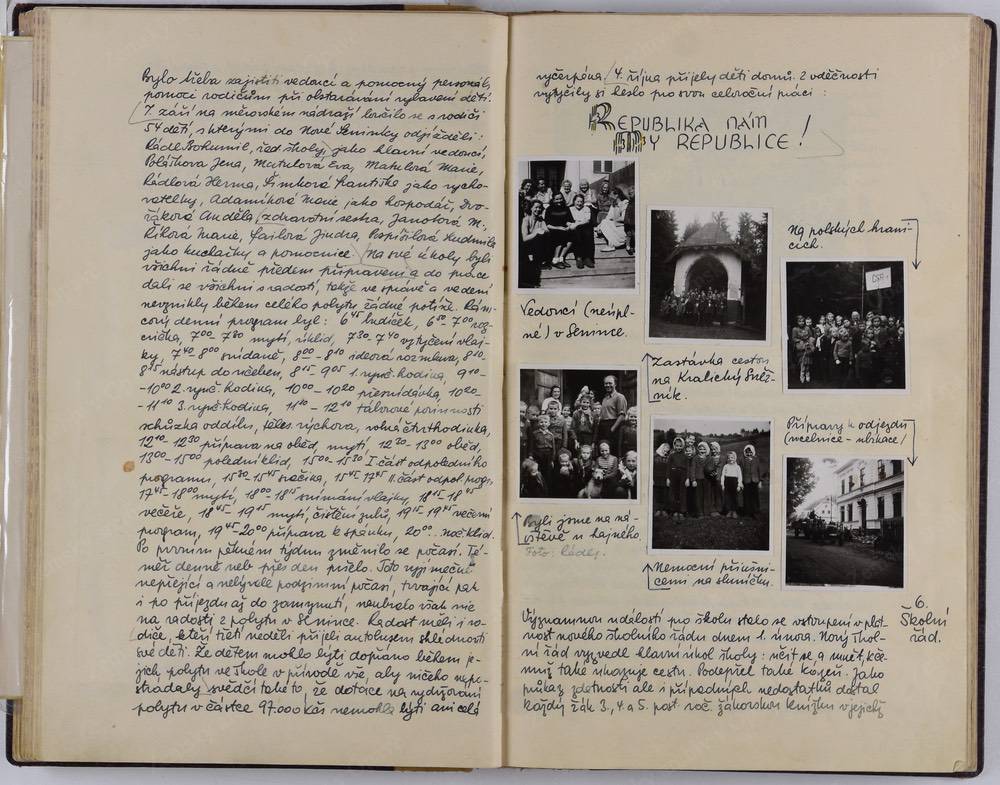 Bylo třeba zajistiti vedoucí a pomocný personál,
pomoci rodičům při obstarávání vybavení dětí.
7. září na měrovském nádraží loučilo se s rodiči
54 dětí, s kterými do Nové Seninky odjížděli:
Rádl Bohumil, řed. školy, jako hlavní vedoucí,
Poláškova Jena, Matulová Eva, Matulová Marie,
Rádlová Herma, Šimková Františka jako vycho-
vatelky, Adamíková Marie jako hospodář, Dvo-
řáková Anděla, zdravotní sestra, Janotová M.,
Říková Marie, Failová Jindra, Pospíšilová Ludmila
jako kuchařky a pomocnice. Na své úkoly byli
všichni řádně předem připraveni a do práce
dali se všichni s radostí, takže ve správě a vedení
nevznikly během celého pobytu žádné potíže. Rám-
cový denní program byl: 6⁴⁵ budíček, 6⁵⁰ – 7⁰⁰ roz-
cvička, 7⁰⁰ – 7³⁰ mytí, úklid, 7³⁰ – 7⁴⁰ vztyčení vlaj-
ky, 7⁴⁰ – 8⁰⁰ snídaně, 8⁰⁰ – 8¹⁰ ideová rozmluva, 8¹⁰ -
8¹⁵ nástup do učeben, 8¹⁵ – 9⁰⁵ 1. vyuč. hodina, 9¹⁰ -
-10⁰⁰ 2. vyuč. hodina, 10⁰⁰ – 10²⁰ přesnídávka, 10²⁰ -
- 11¹⁰ 3. vyuč. hodina, 11¹⁰ – 12¹⁰ táborové povinnosti
schůzka oddílu, těles. výchova, volná čtvrthodinka,
12¹⁰ – 12³⁰ příprava na oběd, mytí, 12³⁰ – 13⁰⁰ oběd,
13⁰⁰ – 15⁰⁰ polední klid, 15⁰⁰ – 15³⁰ I. část odpoledního
programu, 15³⁰ – 15⁴⁵ svačina, 15⁴⁵ 17⁴⁵ II. část odpol. progr.,
17⁴⁵ – 18⁰⁰ mytí, 18⁰⁰ – 18¹⁵ snímání vlajky, 18¹⁵ – 18⁴⁵
večeře, 18⁴⁵ – 19¹⁵ mytí, čištění zubů, 19¹⁵ – 19⁴⁵ večerní
program, 19⁴⁵ – 20⁰⁰ příprava k spánku, 20⁰⁰ .. noč. klid.
Po prvním pěkném týdnu změnilo se počasí. Té-
měř denně nebo přes den pršelo. Toto výjimečně
nepřející a nebývale podzimní počasí, trvající pak
i po příjezdu až do zamrznutí, neubralo však nic
na radosti z pobytu v Senince. Radost měli i ro-
diče, kteří třetí neděli přijeli autobusem shlédnouti
své děti. Že dětem mohlo býti dopřáno během je-
jich pobytu ve škole v přírodě vše, aby ničeho nepo-
strádaly svědčí také to, že dotace na vydržování
pobytu v částce 97.000 Kčs nemohla býti ani celá
vyčerpána. 4. října přijely děti domů. Z vděčnosti
vytyčily si heslo pro svou celoroční práci:
REPUBLIKA NÁM
MY REPUBLICE!
Vedoucí (neúpl-
né) v Senince.
Zastávka cestou
na Kralický Sněž-
ník.
Na polských hrani-
cích.
ČSR.
Byli jsme na ná-
vštěvě u hajného.
Foto: Rádl.
Nemocní příušni-
cemi na sluníčku.
Přípravy k odjezdu
(učebnice - ubikace)
6.
Školní
řád.
Významnou událostí pro školu stalo se vstoupení v plat-
nost nového školního řádu dnem 1. února. Nový škol-
ní řád vyzvedl hlavní úkol školy: učit se a umět, k če-
muž také ukazuje cestu. Podepřel také kázeň. Jako
průkaz zdatnosti ale i případných nedostatků dostal
každý žák 3., 4. a 5. post. roč. žákovskou knížku v jejichž